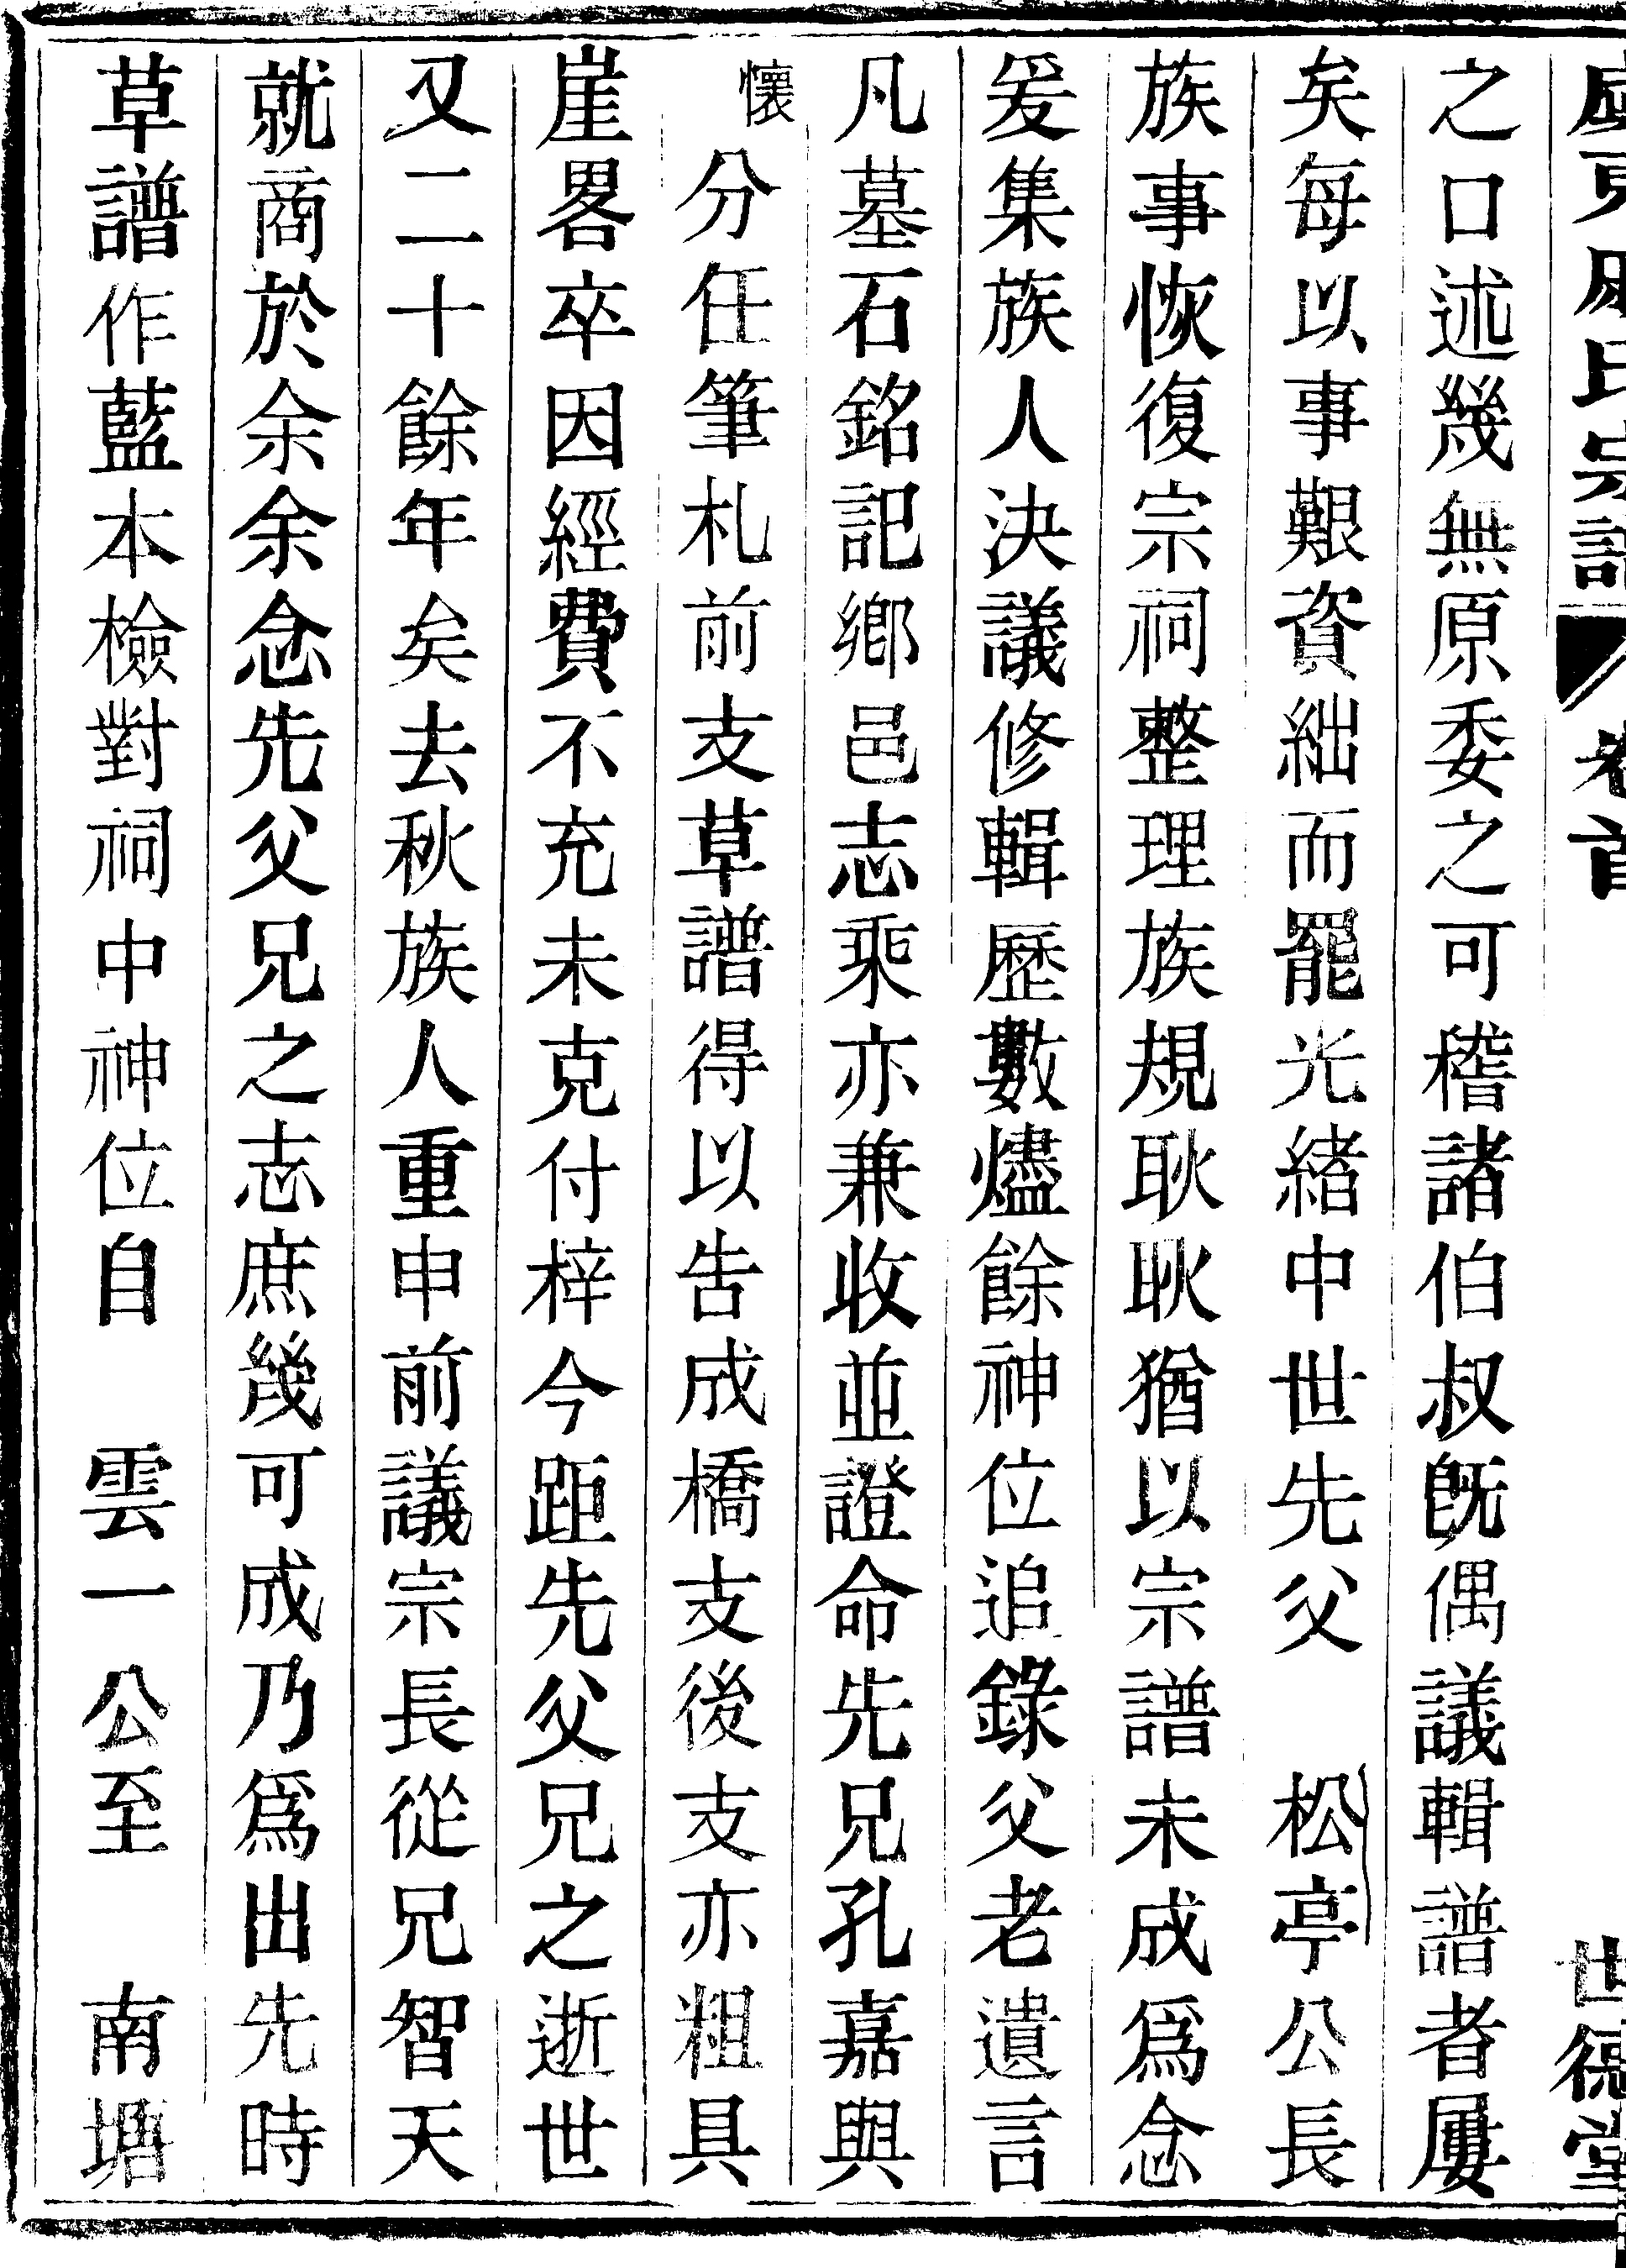 氏宗譜 卷首 世德堂
之口述幾無原委之可稽諸伯叔旣偶議輯譜者屢
矣每以事艱資絀而罷光緒中世先父 松亭公長
族事恢復宗祠整理族規耿耿猶以宗譜未成爲念
爰集族人決議修輯歷數燼餘神位追錄父老遺言
凡墓石銘記鄉邑志乘亦兼收並證命先兄孔嘉與
懷分任筆札前支草譜得以告成橋支後支亦粗具
崖畧卒因經費不充未克付梓今距先父兄之逝世
又二十餘年矣去秋族人重申前議宗長從兄智天
就商於余余念先父兄之志庶幾可成乃爲出先時
草譜作藍本檢對祠中神位自 雲一公至 南塘